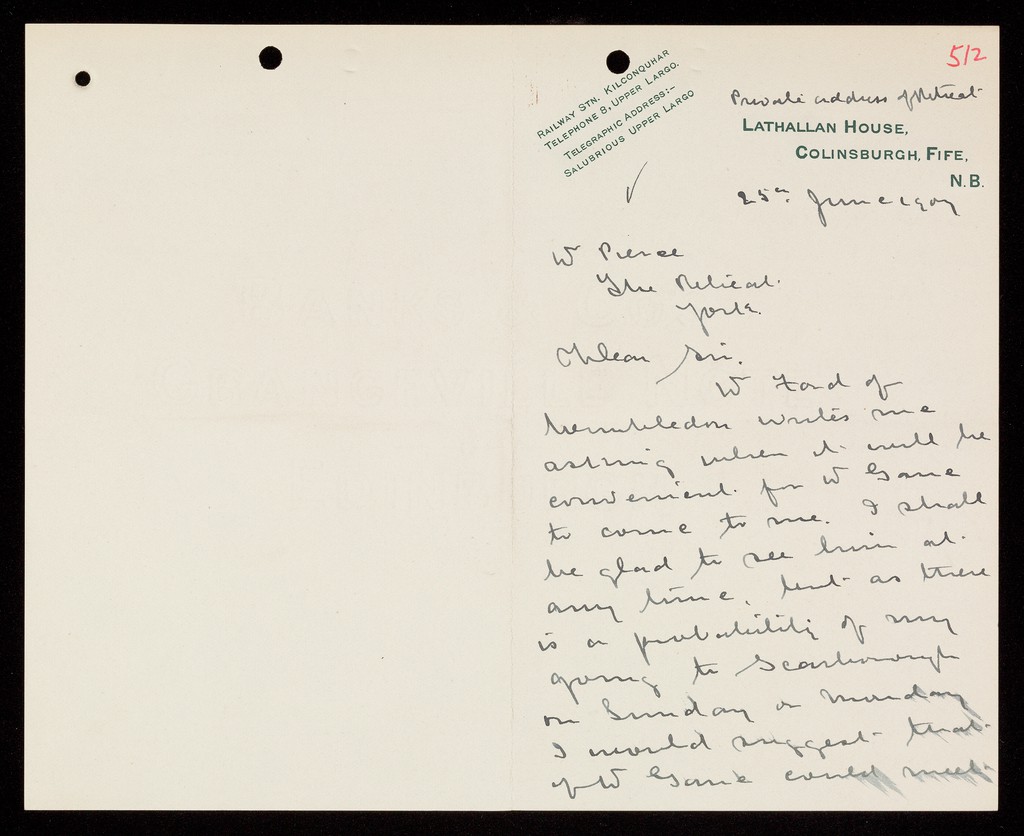 512
RAILWAY STN. KILCONQUHAR
TELEPHONE 8, UPPER LARGO.
TELEGRAPHIC ADDRESS:-
SALUBRIOUS UPPER LARGO
Private address of Retreat
LATHALLAN HOUSE,
COLINSBURGH, FIFE,
N.B.
25th June 1907
W Pierce
The Retreat.
York.
Dear Sir.
W Ford of
Wembledon writes me
asking when it will be
convenient for W Game
to come to me. I shall
be glad to see him at
any time, but as there
is a probability of my
going to Scarborough
on Sunday or Monday
I would suggest that
if W Game could meet